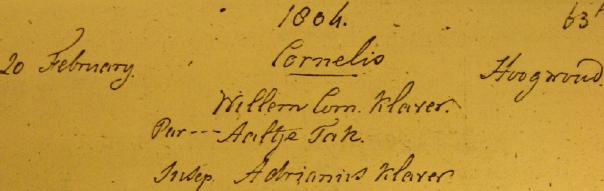 1804. 63
20 February. Cornelis Hoogwoud.
Willem Corn. Klaver.
Par--- Aaltje Tak.
Susep. Adrianus Klaver